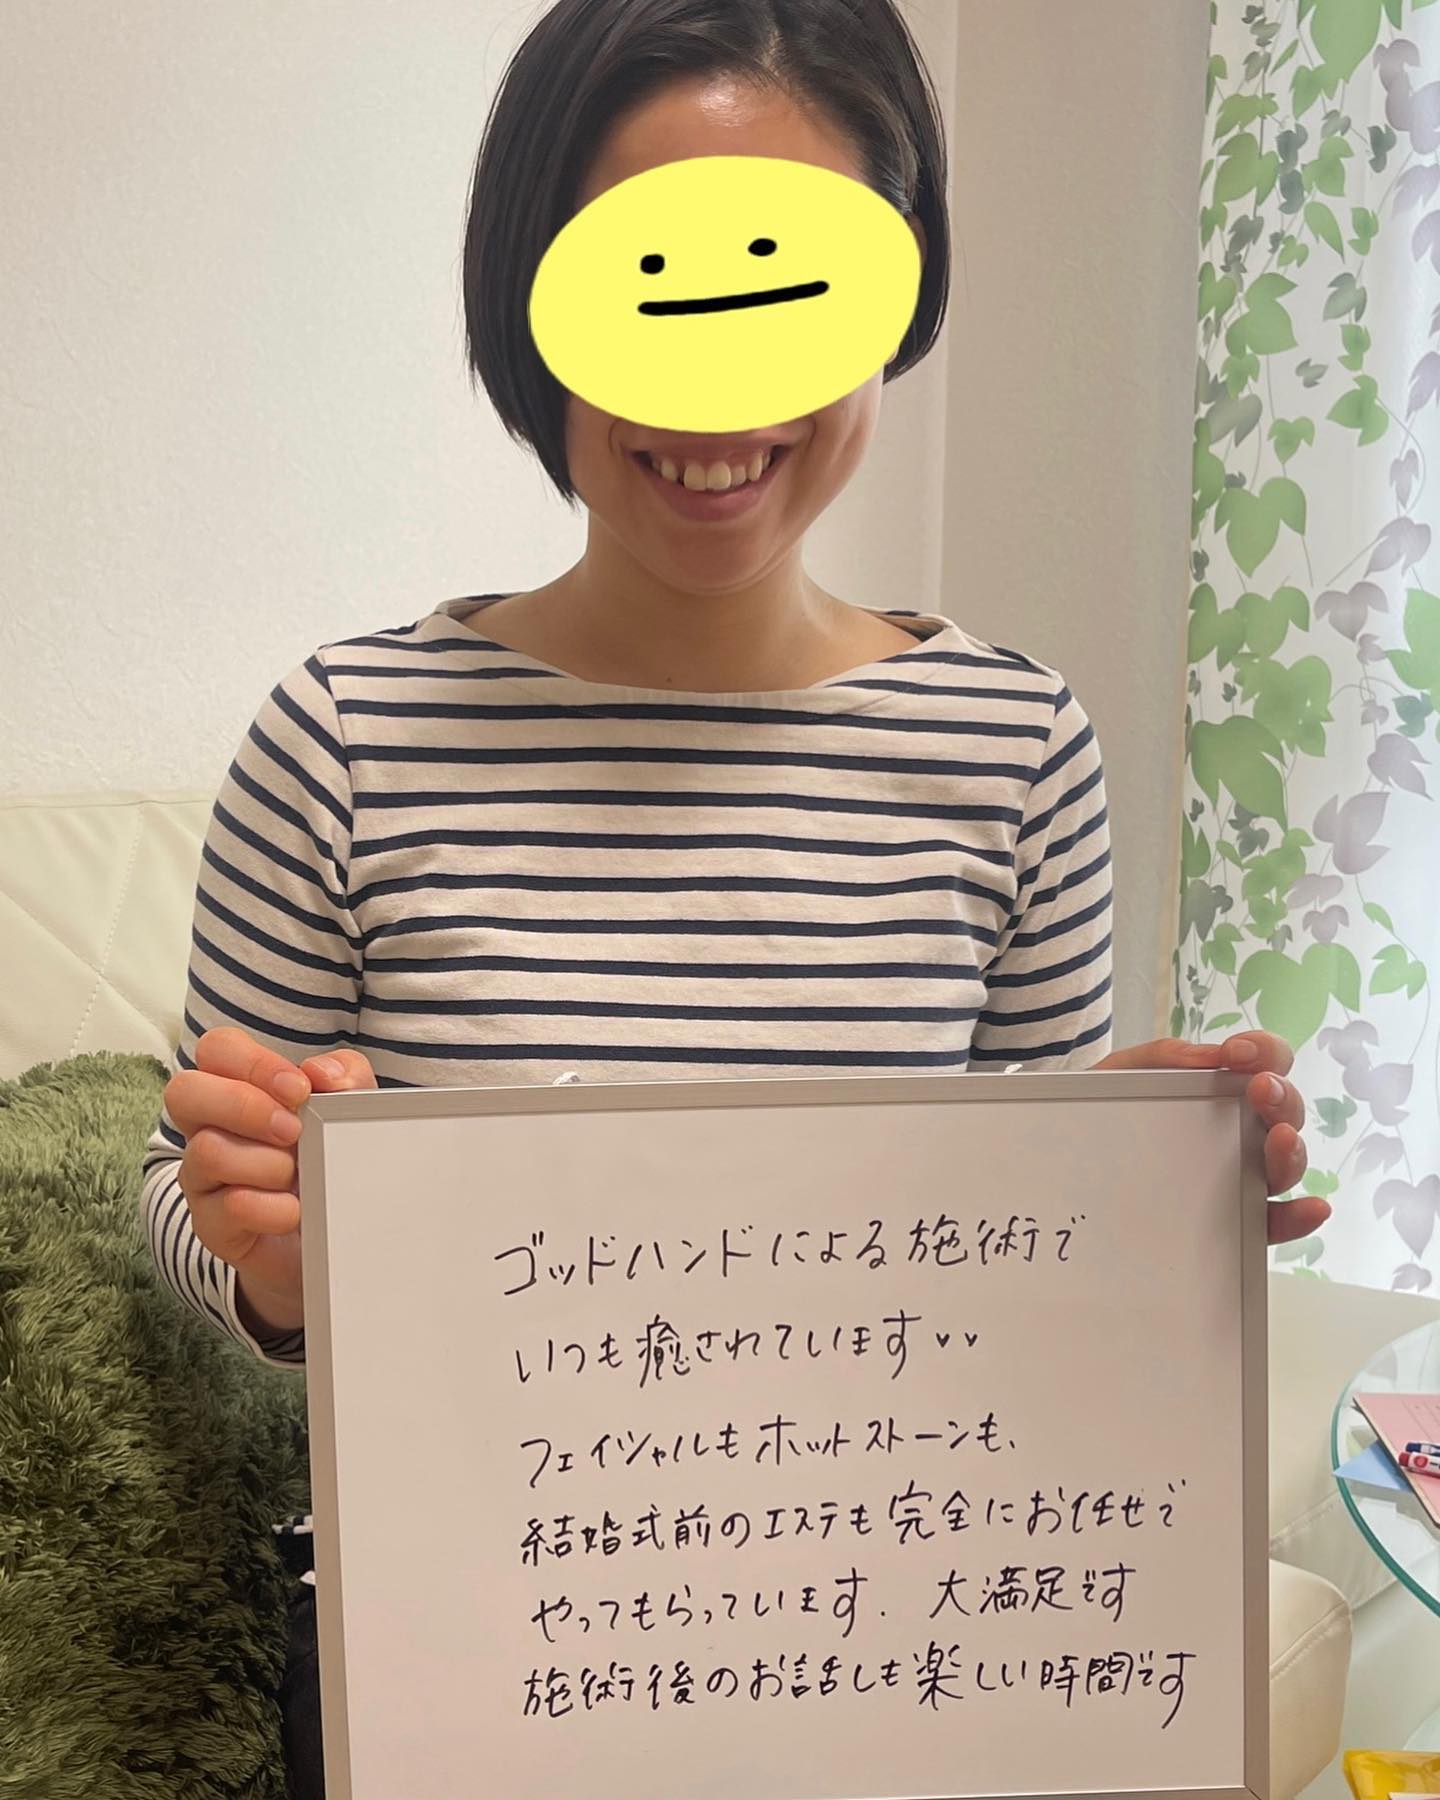 ゴッドハンドによる施術で
いつも癒されています♥♥
フェイシャルもホットストーンも、
結婚式前のエステも完全にお任せで
やってもらっています. 大満足です
施術後のお話しも楽しい時間です